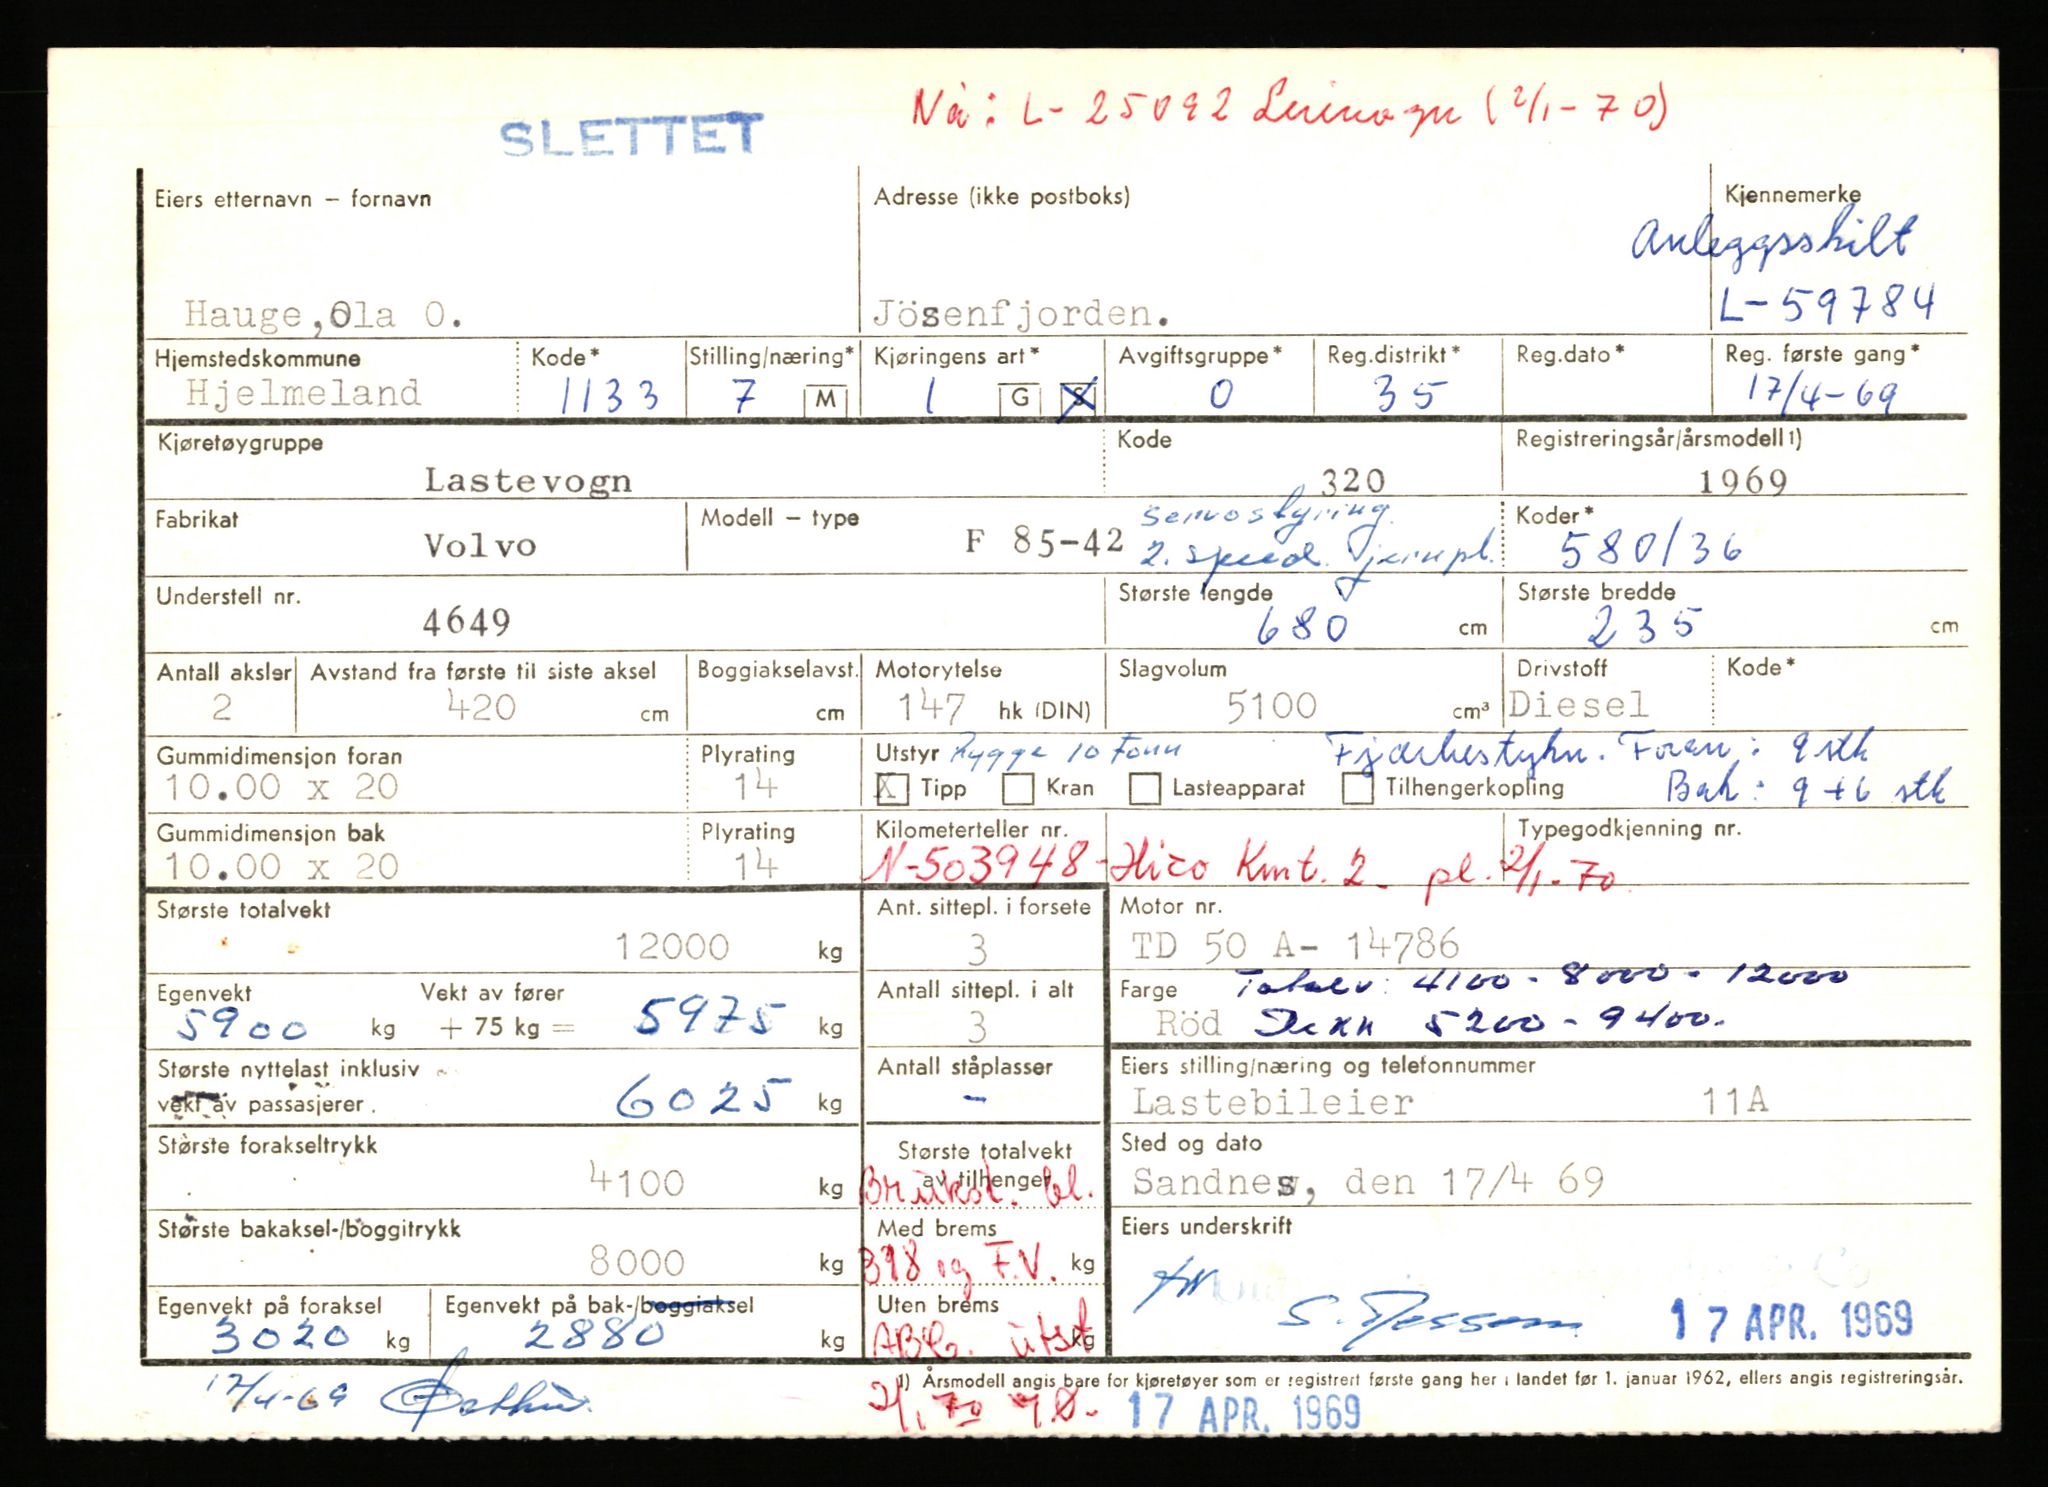 Nå: L-25092 Leievogn (2/1-70)
SLETTET
Eiers etternavn – fornavn
Adresse (ikke postboks)
Kjennemerke
Anleggsskilt
Hauge,Ola O.
Jösenfjorden.
L-59784
Hjemstedskommune Kode* Stilling/næring* Kjøringens art* Avgiftsgruppe* Reg.distrikt* Reg.dato* Reg. første gang*
Hjelmeland 1133 7 M 1 G S 0 35 17/4-69
Kjøretøygruppe Kode Registreringsår/årsmodell 1)
Lastevogn 320 1969
Fabrikat Modell – type servostyring Koder*
Volvo F 85-42 2. speed. 580/36
Understell nr. Største lengde Største bredde
4649 680 cm 235 cm
Antall aksler Avstand fra første til siste aksel Boggiakselavst. Motorytelse Slagvolum Drivstoff Kode*
2 420 cm cm 147 hk (DIN) 5100 cm³ Diesel
Gummidimensjon foran Plyrating Utstyr Hygge 10 Tonn Foran: 9 stk
10.00 x 20 14 X Tipp Kran Lasteapparat Tilhengerkopling Bak: 9+6 stk
Gummidimensjon bak Plyrating Kilometerteller nr. Typegodkjenning nr.
10.00 x 20 14 N-503948-Hico Kmt. 2 - pl. 2/1-70.
Største totalvekt Ant. sittepl. i forsete Motor nr.
12000 kg 3 TD 50 A- 14786
Egenvekt Vekt av fører Antall sittepl. i alt Farge Totalv: 4100-8000-12000
5900 kg + 75 kg = 5975 kg 3 Röd Dekk 5200-9400.
Største nyttelast inklusiv Antall ståplasser Eiers stilling/næring og telefonnummer
vekt av passasjerer. 6025 kg - Lastebileier 11A
Største forakseltrykk Største totalvekt Sted og dato
4100 kg av tilhenger Brukst. bl. Sandnes, den 17/4 69
Største bakaksel-/boggitrykk Med brems Eiers underskrift
8000 kg 398 og F.V. kg
Egenvekt på foraksel Egenvekt på bak-/boggiaksel Uten brems
3020 kg 2880 kg utst kg 17 APR. 1969
1) Årsmodell angis bare for kjøretøyer som er registrert første gang her i landet før 1. januar 1962, ellers angis registreringsår.
17/4-69 2/1 70 17 APR. 1969